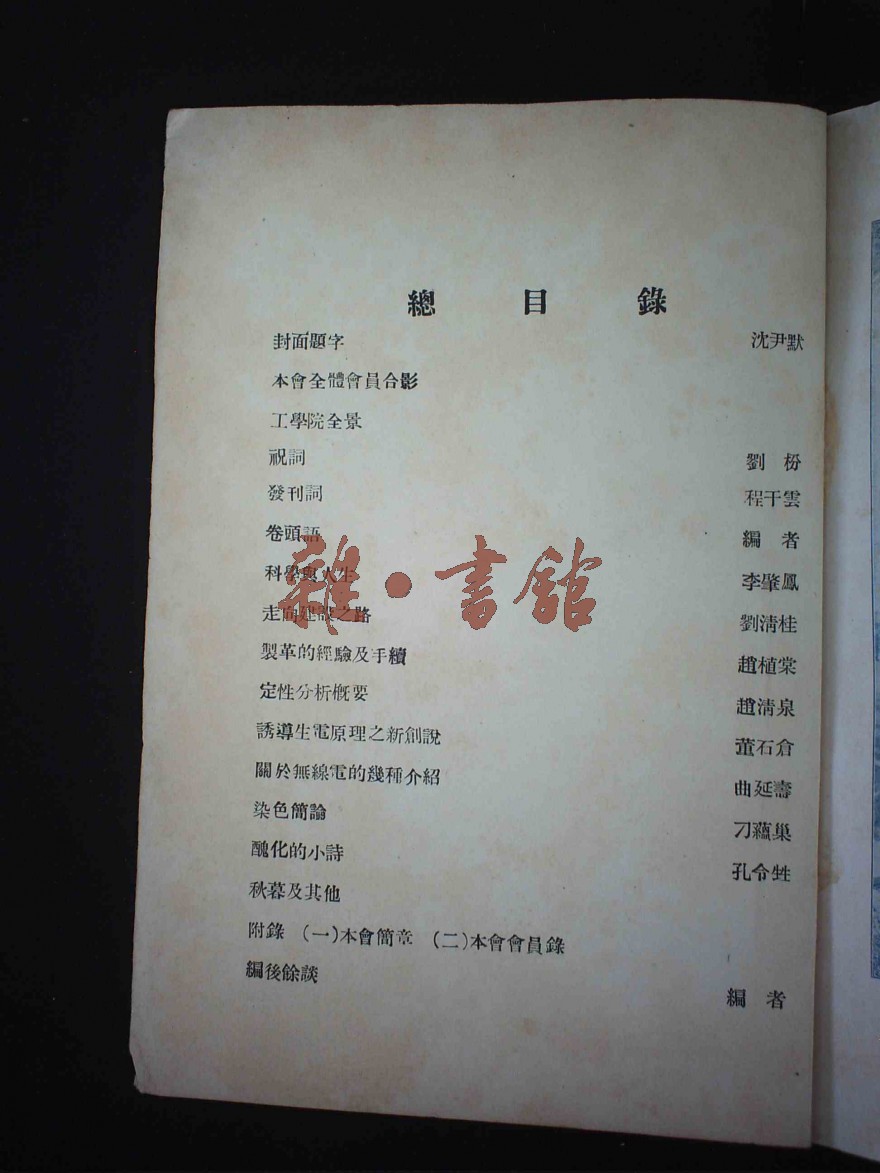 總目錄
封面題字 沈尹默
本會全體會員合影
工學院全景
祝詞 劉枌
發刊詞 程干雲
卷頭語 編者
科學與人生 李肇鳳
走向建設之路 劉淸桂
製革的經驗及手續 趙植棠
定性分析槪要 趙淸泉
誘導生電原理之新創說 董石倉
關於無線電的幾種介紹 曲延壽
染色簡論 刁蘊巢
醜化的小詩 孔令甡
秋暮及其他
附錄 (一)本會簡章 (二)本會會員錄
編後餘談 編者
雜·書館